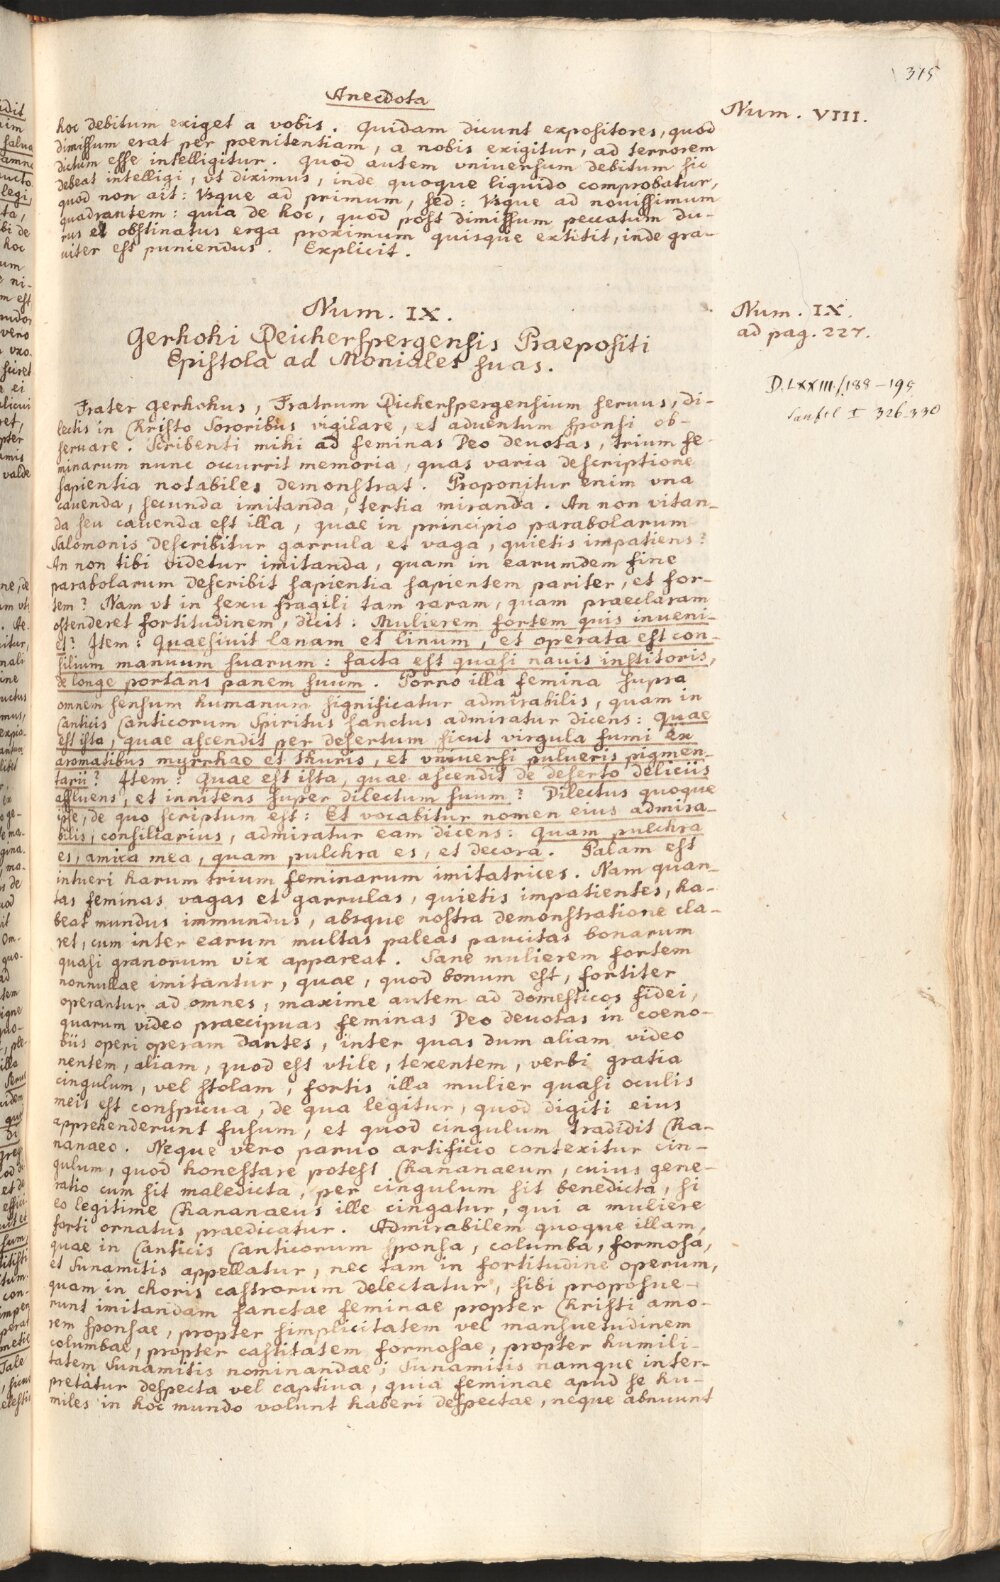 315
Anecdota
Num. VIII.
hoc debitum exiget a vobis. Quidam dicunt expositores, quod
dimissum erat per poenitentiam, a nobis exigitur, ad terrorem
dictum esse intelligitur. Quod autem vniversum debitum sic
debeat intelligi, vt diximus, inde quoque liquido comprobatur,
quod non ait: Vsque ad primum, sed: Vsque ad novissimum
quadrantem: quia de hoc, quod post dimissum peccatum du-
rus et obstinatus erga proximum quisque extitit, inde gra-
uiter est puniendus. Explicit.
Num. IX.
Gerhohi Reicherspergensis Praepositi
Epistola ad Moniales suas.
Num. IX.
ad pag. 227.
D. LXXIII/188-195
I 326-330
Frater Gerhohus, Fratrum Richerspergensium seruus, di-
lectis in Christo Sororibus vigilare, et aduentum sponsi ob-
seruare. Scribenti mihi ad feminas Deo deuotas, trium fe-
minarum nunc occurrit memoria, quas varia descriptione
sapientia notabiles demonstrat. Proponitur enim vna
cauenda, secunda imitanda, tertia miranda. An non vitan-
da seu cauenda est illa, quae in principio parabolarum
Salomonis describitur garrula et vaga, quietis impatiens?
An non tibi videtur imitanda, quam in earumdem fine
parabolarum describit sapientia sapientem pariter, et for-
tem? Nam vt in sexu fragili tam raram, quam praeclaram
ostenderet fortitudinem, dicit: Mulierem fortem quis inueni-
et? Item: Quaesiuit lanam et linum, et operata est con-
silium manuum suarum: facta est quasi nauis institoris,
de longe portans panem suum. Porro illa femina supra
omnem sensum humanum significatur admirabilis, quam in
Canticis Canticorum Spiritus sanctus admiratur dicens: Quae
est ista, quae ascendit per desertum sicut virgula fumi ex
aromatibus myrrhae et thuris, et vniuersi pulueris pigmen-
tarii? Item: Quae est ista, quae ascendit de deserto deliciis
affluens, et innitens super dilectum suum? Dilectus quoque
ipse, de quo scriptum est: Et vocabitur nomen eius admira-
bilis, consiliarius, admiratur eam dicens: Quam pulchra
es, amica mea, quam pulchra es, et decora. Palam est
intueri harum trium feminarum imitatrices. Nam quan-
tas feminas vagas et garrulas, quietis impatientes, ha-
beat mundus immundus, absque nostra demonstratione cla-
ret, cum inter earum multas paleas paucitas bonarum
quasi granorum vix appareat. Sane mulierem fortem
nonnullae imitantur, quae, quod bonum est, fortiter
operantur ad omnes, maxime autem ad domesticos fidei,
quarum video praecipuas feminas Deo deuotas in coeno-
biis operi operam dantes, inter quas dum aliam video
nentem, aliam, quod est vtile, texentem, verbi gratia
cingulum, vel stolam, fortis illa mulier quasi oculis
meis est conspicua, de qua legitur, quod digiti eius
apprehenderunt fusum, et quod cingulum tradidit Cha-
nanaeo. Neque vero paruo artificio contexitur cin-
gulum, quod honestare potest Chananaeum, cuius gene-
ratio cum sit maledicta, per cingulum fit benedicta, si
eo legitime Chananaeus ille cingatur, qui a muliere
forti ornatus praedicatur. Admirabilem quoque illam,
quae in Canticis Canticorum sponsa, columba, formosa,
et Sunamitis appellatur, nec tam in fortitudine operum,
quam in choris castrorum delectatur, sibi proposue-
runt imitandam sanctae feminae propter Christi amo-
rem sponsae, propter simplicitatem vel mansuetudinem
columbae, propter castitatem formosae, propter humili-
tatem Sunamitis nominandae; Sunamitis namque inter-
pretatur despecta vel captiua, quia feminae apud se hu-
miles in hoc mundo volunt haberi despectae, neque abnuunt